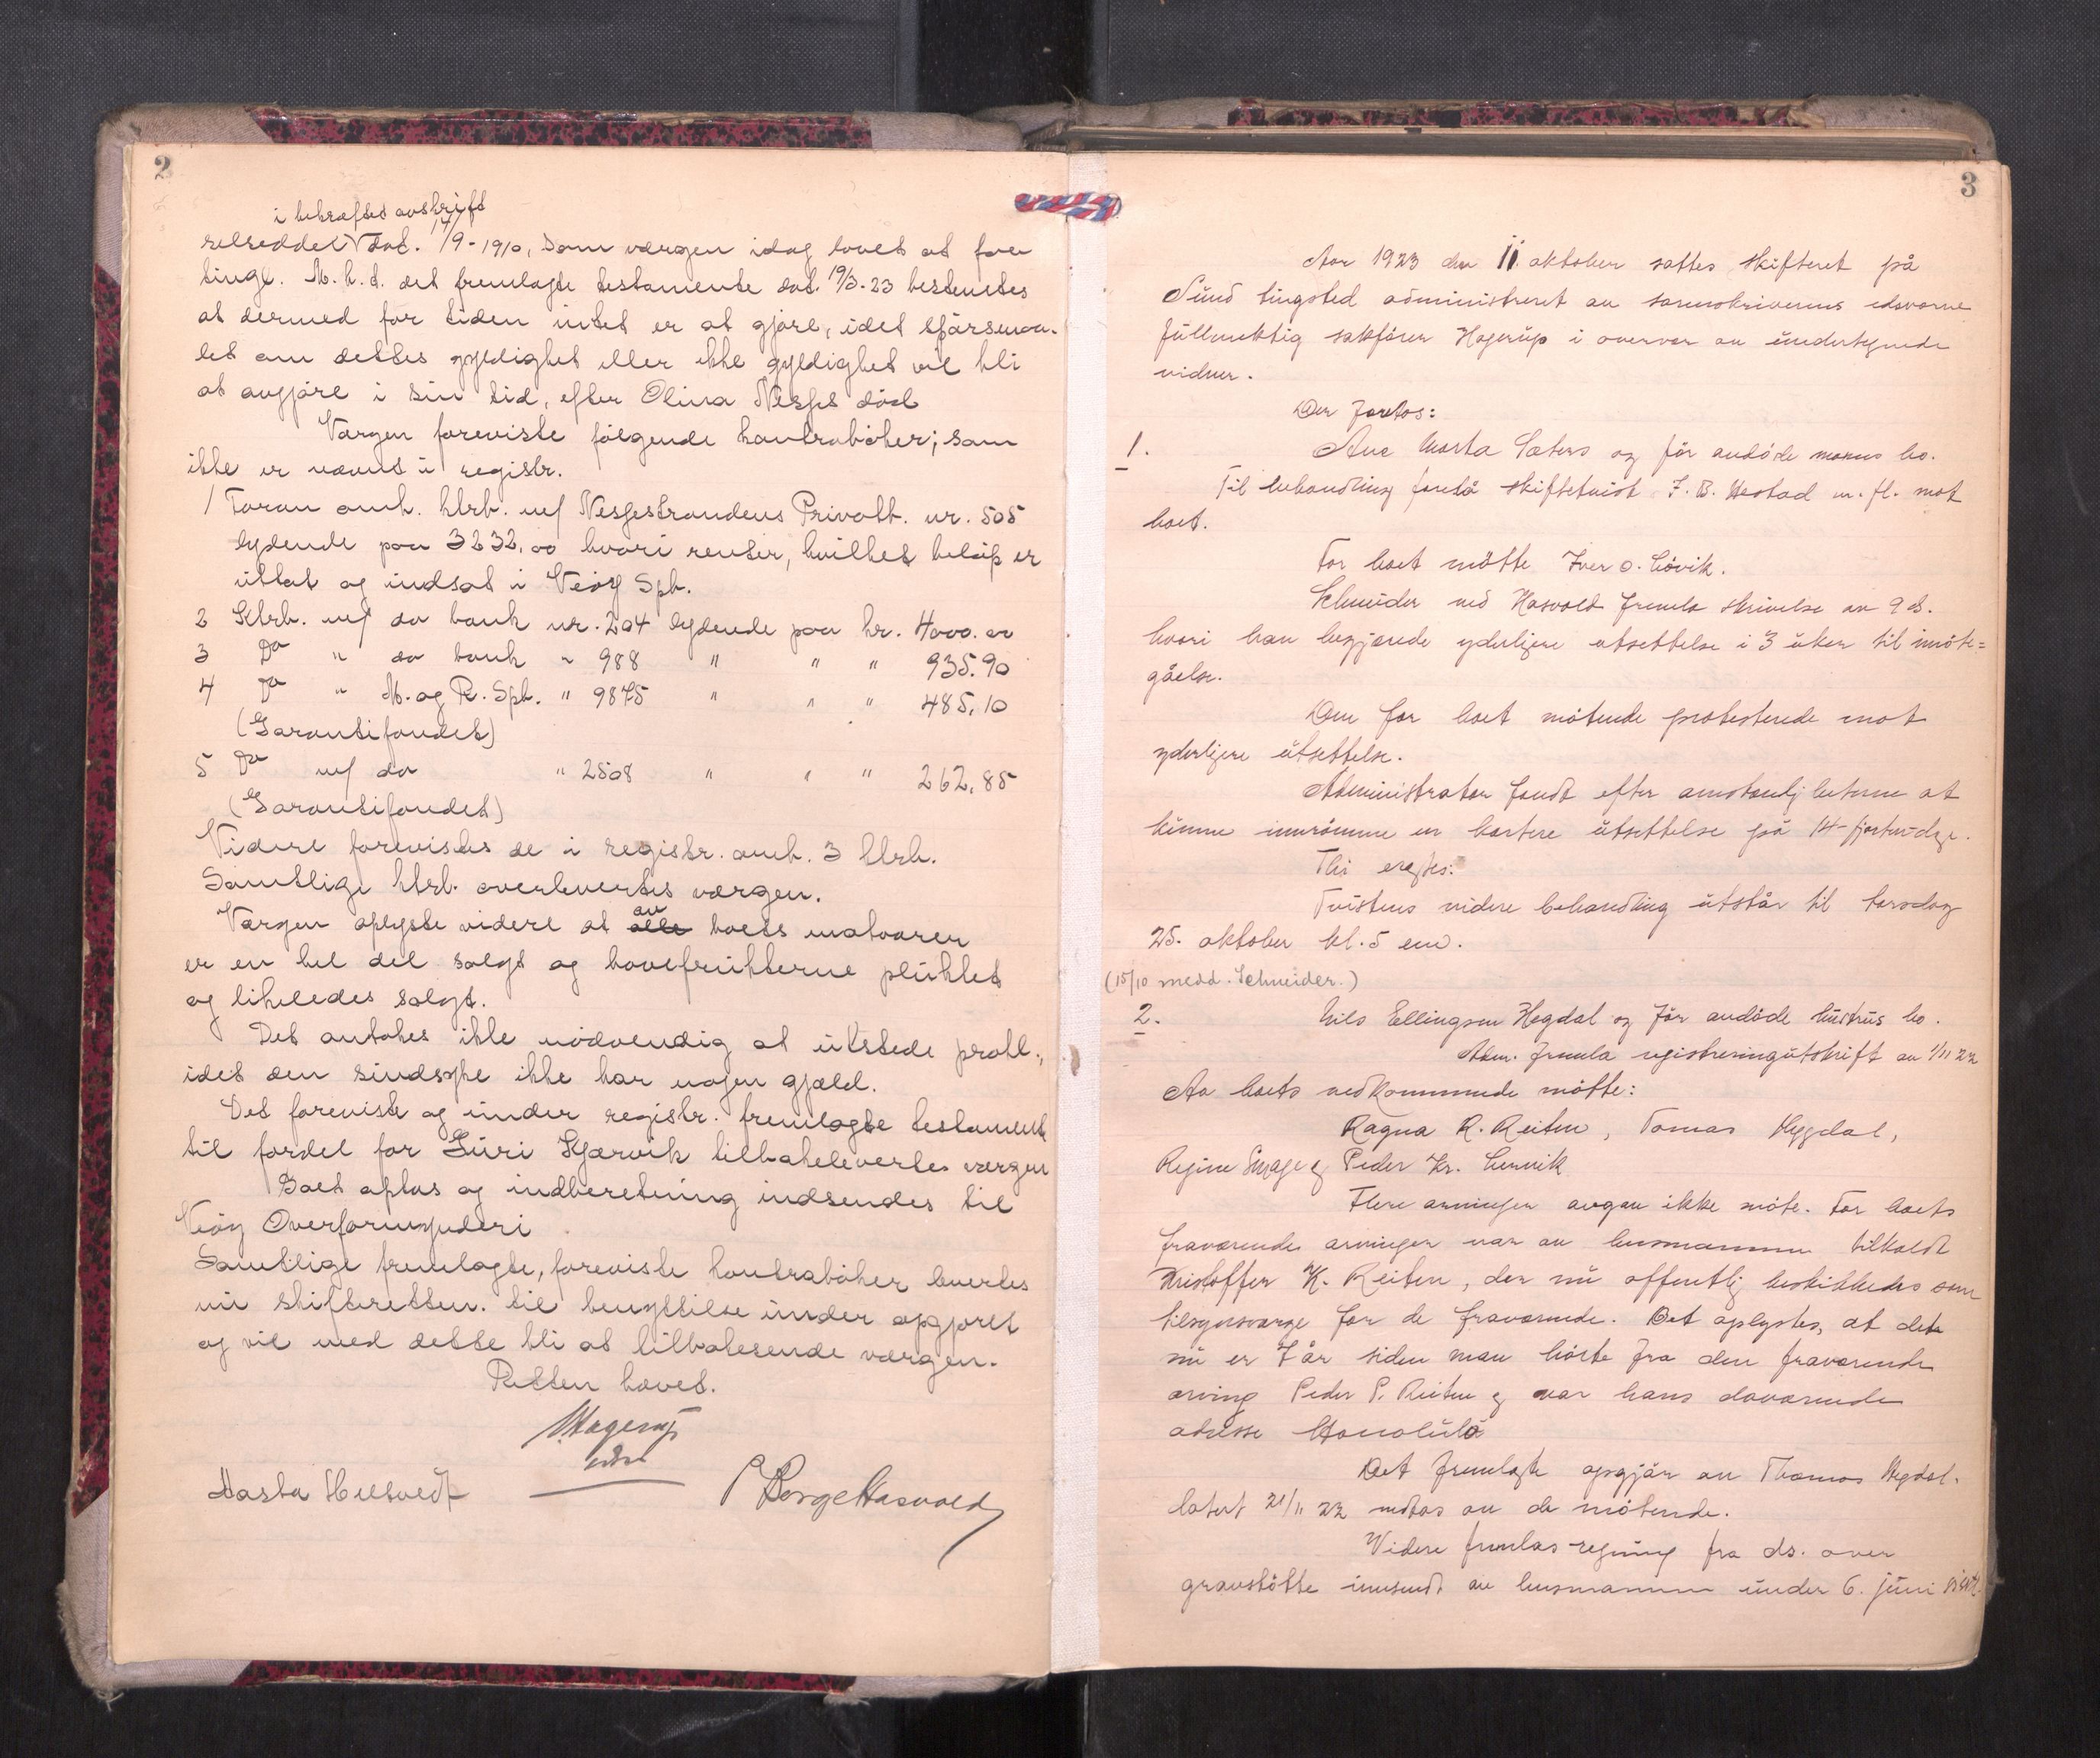 2
i bekræftet avskrift
relseddel V dat. 14/9-1910, som værgen idag lovet at faa
tingl. M.h.t. det fremlagte testamente dat. 19/3-23 bestemtes
at dermed for tiden intet er at gjøre, idet spørsmaa-
let om dettes gyldighet eller ikke gyldighet vil bli
at avgjøre i sin tid, efter Olina Nesjes död
Værgen foreviste følgende kontraböker; som
ikke er nævnt i registr.
1 Foran anm. ktrb. m/ Nesjestrandens Privatb. nr. 505
lydende paa 3232,00 hvori renter, hvilket belöp er
uttat og indsat i Veöy Spb.
2 Ktrb. m/ do bank nr. 204 lydende paa kr. 4000.00
3 Do " do bank " 988 " " " 935.90
4 Do " M. og R. Spb. " 9875 " " " 485,10
(Garantifondet)
5 Do m/ do " 2508 " " " 262,85
(Garantifondet)
Videre forevistes de i registr. anm. 3 ktrb.
Samtlige ktrb. overlevertes værgen.
Værgen oplyste videre at alle av boets matvarer
er en hel del solgt og havefrukterne plukket
og likeledes solgt.
Det antokes ikke nödvendig at utstede prokl.,
idet den sindsyke ikke har nogen gjæld.
Det foreviste og under registr. fremlagte testamente
til fordel for Guri Hjærvik tilbakelevertes værgen
Boet optas og indberetning indsendes til
Veöy Overformynderi
Samtlige fremlagte, foreviste kontraböker levertes
nu skifteretten til benyttelse under opgjöret
og vil med dette bli at tilbakesende værgen.
Retten hævet.
Hagerup
edsv
P. Borge Hasvold
3
Aar 1923 den 11. oktober sattes skifteret på
Sund tingsted administreret av sorenskriverens edsvorne
fullmektig sakförer Hagerup i overvær av undertegnede
vidner.
Der foretos:
1. Ane Marta Sæters og för avdöde manns bo.
Til behandling foretå skiftetvist F. B. Hestad m. fl. mot
boet.
For boet mötte Iver O. Lövik.
Schneider ved Hasvold fremla skrivelse av 9 ds.
hvori han begjærede yderligere utsettelse i 3 uker til imöte=
gåelse.
Den for boet mötende protesterede mot
yderligere utsettelse.
Administrator fandt efter omstendigheterne at
kunne innrömme en kortere utsettelse på 14-fjorten-dage.
Thi eragtes:
Tvistens videre behandling utstår til torsdag
25. oktober kl. 5 em.
(15/10 medd. Schneider.)
2. Nils Ellingsen Hegdal og för avdöde hustrus bo.
Adm. fremla registreringsutskrift av 1/11 22
Av boets vedkommende mötte:
Ragna R. Reiten, Tomas Hegdal,
Regine og Peder Kr. Lervik
Flere arvinger avgav ikke möte. For boets
fraværende arvinger var av lensmannen tilkaldt
Kristoffer K. Reiten, der nu offentlig beskikkedes som
tilsynsverge for de fraværende. Det oplystes, at det
nu er 7 år siden man hörte fra den fraværende
arving Peder P. Reiten og var hans daværende
adresse Honolulu
Det fremlagte opgjör av Thomas Hegdal
datert 21/11 22 vedtas av de mötende.
Videre fremlas regning fra ds. over
gravstötte innsendt av lensmannen under 6. juni sistl.